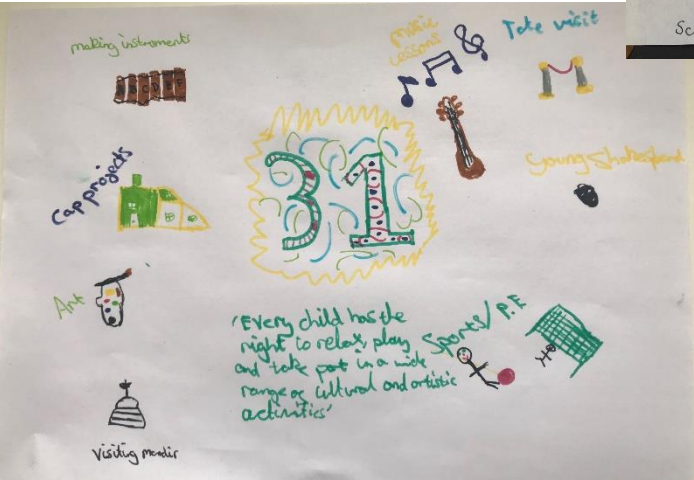 making instroments
music
lessons
Tate visit
Cap projects
31
Young Shakespeare
Art
Sports/P.E
'Every child has the
right to relax, play
and take part in a wide
range of cultural and artistic
activities'
Visiting mandir